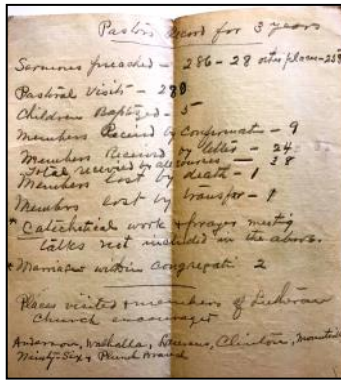 Pastor's Record for 3 years
Sermons preached - 286 - 28 other places - 258
Pastoral Visits - 280
Children Baptized - 5
Members Received by Confirmation - 9
Members Received by letter - 24
Total received by all sources - 38
Members lost by death - 1
Members lost by transfer - 1
* Catechetical work & prayer meeting
talks not included in the above.
* Marriages within congregati 2
Places visited & members of Lutheran
Church encouraged
Anderson, Walhalla, Laurens, Clinton,
Ninety-Six &